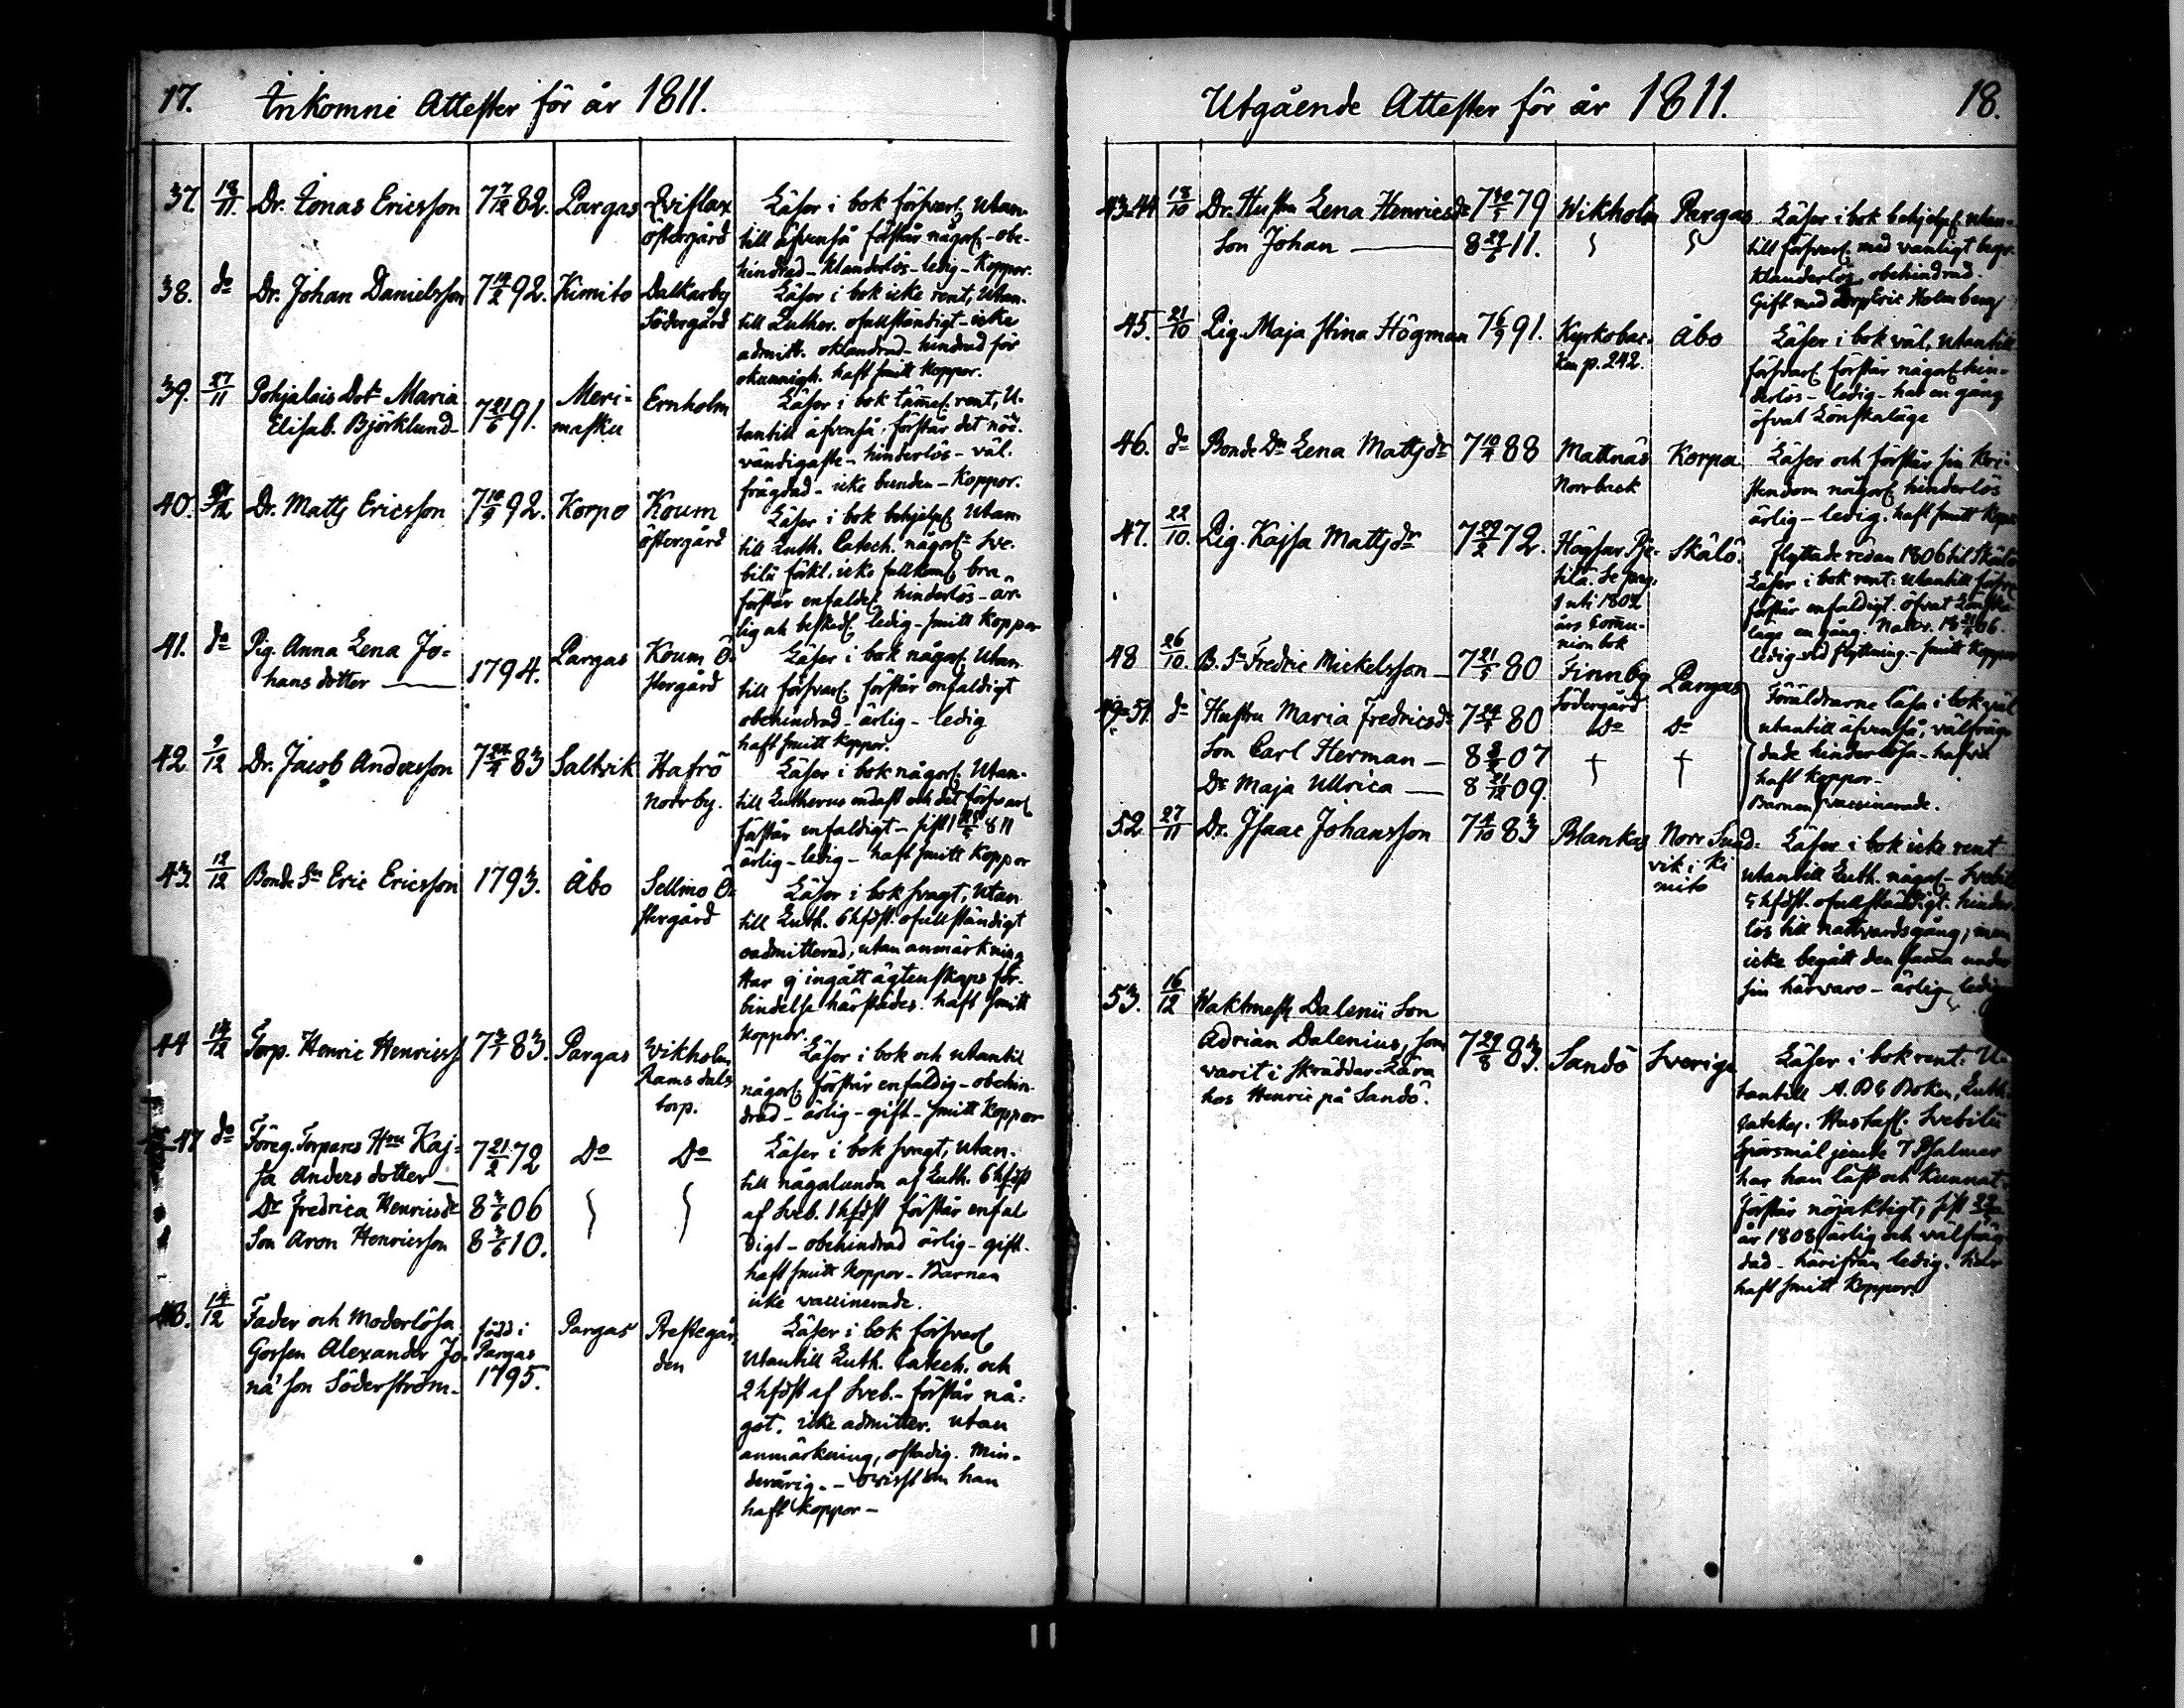 17. Inkomne Attester för år 1811.
37. 18/11. Dr. Jonas Ericsson 7 7/12 82. Pargas Qviflax Östergård
Läser i bok försvarl. Utan-
till äfvenså förstår någorl. - obe-
hindrad - klanderlös - ledig - Koppor.
38. do Dr. Johan Danielsson 7 14/2 92. Kimito Dalkarby Södergård
Läser i bok icke rent, Utan-
till Luther. ofullständigt - icke
admitt. oklandrad - hindrad för
okunnigh. haft smitt Koppor.
39. 27/11 Pohjalais Dotr Maria
Elisab. Björklund - 7 21/6 91. Meri-
masku Ernholm
Läser i bok tämel. rent, U-
tantill äfvenså. förstår det nöd-
vändigaste - hinderlös - väl-
frägdad - icke bunden - Koppor.
40. /12 Dr. Matts Ericsson 7 10/9 92. Korpo Koum
Östergård
Läser i bok behjelpl. Utan-
till Luth. Catech. någorl. Sve-
bilii förkl. icke fullkoml. bra
förstår enfaldel. hinderlös - är-
lig ledig - smitt Koppor
41. do Pig. Anna Lena Jo-
hans dotter 1794. Pargas Koum Ö-
stergård
Läser i bok någorl. Utan-
till försvarl. förstår enfaldigt
obehindrad - ärlig - ledig
haft smitt Koppor.
42 9/12 Dr. Jacob Andersson 7 24/4 83 Saltvik Hafrö
Norrby.
Läser i bok någorl. Utan-
till Lutherus endast och det försvarl
förstår enfaldigt - sist 811
ärlig - ledig - haft smitt Koppor
43. 12/12 Bonde Sn Eric Ericsson 1793. Åbo Sellmo Ö-
stergård
Läser i bok svagt, Utan-
till Luth. 6 hfdst. ofullständigt
oadmitterad, utan anmärkning
Har ej ingått ägtenskaps för-
bindelse härstädes. haft smitt
Koppor.
44 14/12 Torp. Henric Henricss 7 3/1 83. Pargas Vikholm
Ramsdals
torp.
Läser i bok och utantil
någorl. förstår enfaldig - obehin-
drad - ärlig - gift - smitt Koppor
47 do Föreg. Torpares Hru Kaj-
sa Anders dotter - 7 21/2 72 Do Do
Dr Fredrica Henricsdr 8 3/6 06
Son Aron Henricsson 8 3/6 10.
Läser i bok svagt, Utan-
till någalunda af Luth. 6 hfdst
af Sveb. 1 hfdst förstår enfal-
digt - obehindrad ärlig - gift.
haft smitt Koppor - Barnen
icke vaccinerade.
48. 14/12 Fader och Moderlösa
Gossen Alexander Jo-
na' son Söderström -
född i
Pargas
1795. Pargas Prestegår-
den
Läser i bok försvarl
Utantill Luth. Catech. och
2 hfdst af Sveb. - förstår nå-
got. icke admitter. utan
anmärkning, ostadig. Min-
derårig. - ovisst om han
haft koppor -
Utgående Attester för år 1811. 18.
43-44 18/10 Dr. Hustru Lena Henricsdr 7 30/5 79 Wikholm Pargas
Son Johan 8 29/ 11.
Läser i bok behjelpl. utan-
till försvarl. med vanligt begr.
klanderlös, obehindrad.
Gift med Eric Holmberg
45. 21/10 Pig. Maja Stina Högman 7 6/9 91. Kyrkobac-
ken p. 242. Åbo
Läser i bok väl, utantill
försvarl. förstår någorl. hin-
derlös - ledig - har en gång
öfvat Lönskaläge
46. do Bonde Dr Lena Mattsdr 7 10/4 88 Mattnäs
Norrback Korpo
Läser och förstår sin Kri-
stendom någorl. hinderlös
ärlig - ledig. haft smitt
47. 22/10. Pig. Kajsa Mattsdr 7 29/2 72. Högsar
Se pag.
1802
års Commu-
nion bok Skälö
Flyttade redan 1806 til Skälö
Läser i bok rent. utantill
förstår enfaldigt. öfvat Lönska-
läge en gång. Nattv. 06.
ledig vid flyttning. - smitt Koppor
48 26/10. B. Sn Fredric Mickelsson - 7 21/5 80 Finnby
Södergård Pargas
49-51. do Hustru Maria Fredricsdr 7 24/ 80 Do Do
Son Carl Herman - 8 2/2 07
Dr Maja Ullrica - 8 21/12 09.
Föräldrarne läsa i bok väl
utantill äfvenså, välfräg-
dade hinderlösa - hafva
haft koppor -
Barnen vaccinerade.
52. 27/11 Dr. Isaac Johansson 7 4/10 83 Blankas Norr Sund-
vik i Ki
mito
Läser i bok icke rent
utantill Luth. någorl -
5 hfdst. ofullständigt. hinder-
lös till nattvardsgång, men
icke begått den samma under
sin härvaro - ärlig - ledig
53. 16/12 Waktmest. Dalenii Son
Adrian Dalenius, som
varit i skräddar-Lära
hos Henric på Sandö.
7 29/8 83. Sandö Sverige
Läser i bok rent. U-
tantill A. B C Boken, Luth.
Cateches. Hustafl. Svebilii
Spörsmål jemte 7 Psalmer
har han läst och kunnat.
förstår nöjaktigt, sist
år 1808 ärlig och välfräg-
dad - härifrån ledig.
haft smitt Koppor.